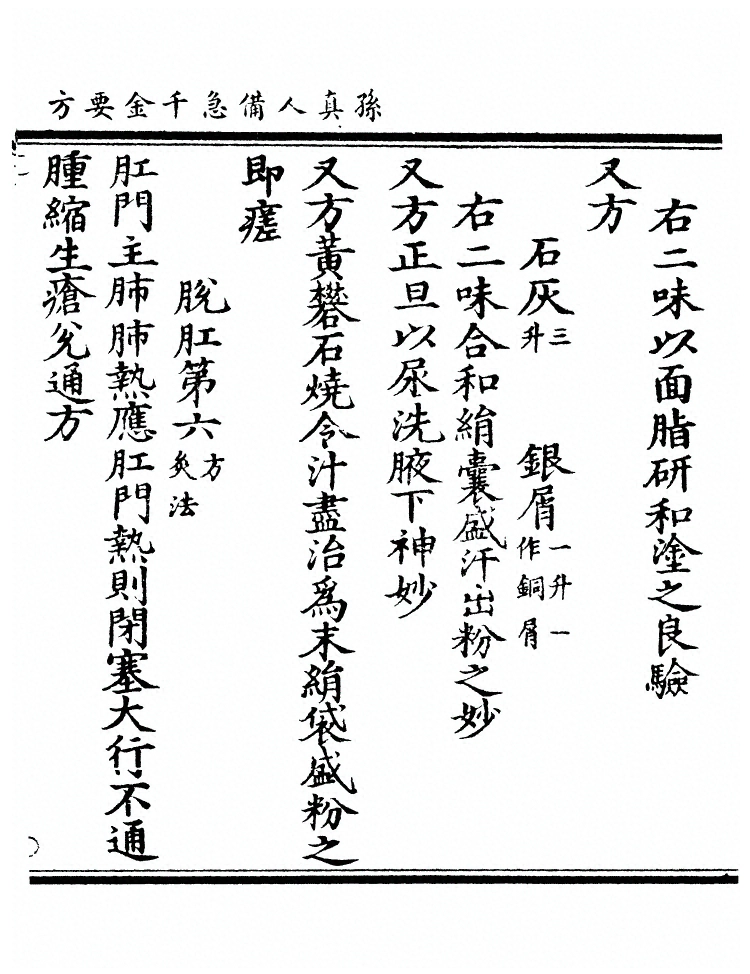 孫真人備急千金要方
右二味以面脂研和塗之良驗
又方
石灰三升 銀屑一升一作銅屑
右二味合和絹囊盛汗出粉之妙
又方正旦以尿洗腋下神妙
又方黃礬石燒令汁盡治爲末絹袋盛粉之
即瘥
脫肛第六方灸法
肛門主肺肺熱應肛門熱則閉塞大行不通
腫縮生瘡兊通方